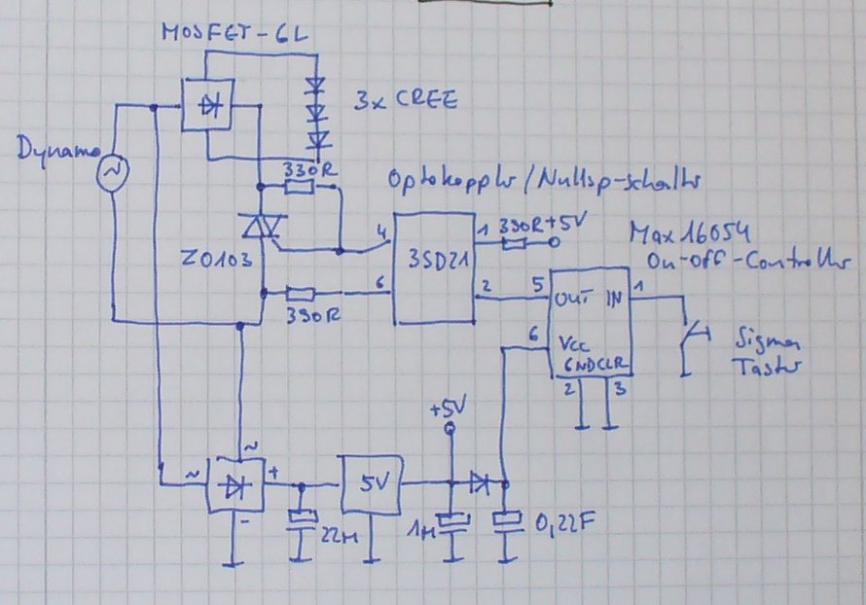 MOSFET-GL
3x CREE
Dynamo
~
330R
Optokoppler/Nullsp-schalter
Z0103
4
3SD21
1
390R
+5V
Max16054
On-Off-Controller
6
2
5
OUT
IN
1
390R
6
VCC
GND
CLR
2
3
Sigma
Taster
+5V
~
~
+
-
5V
22µ
1µ
0,22F